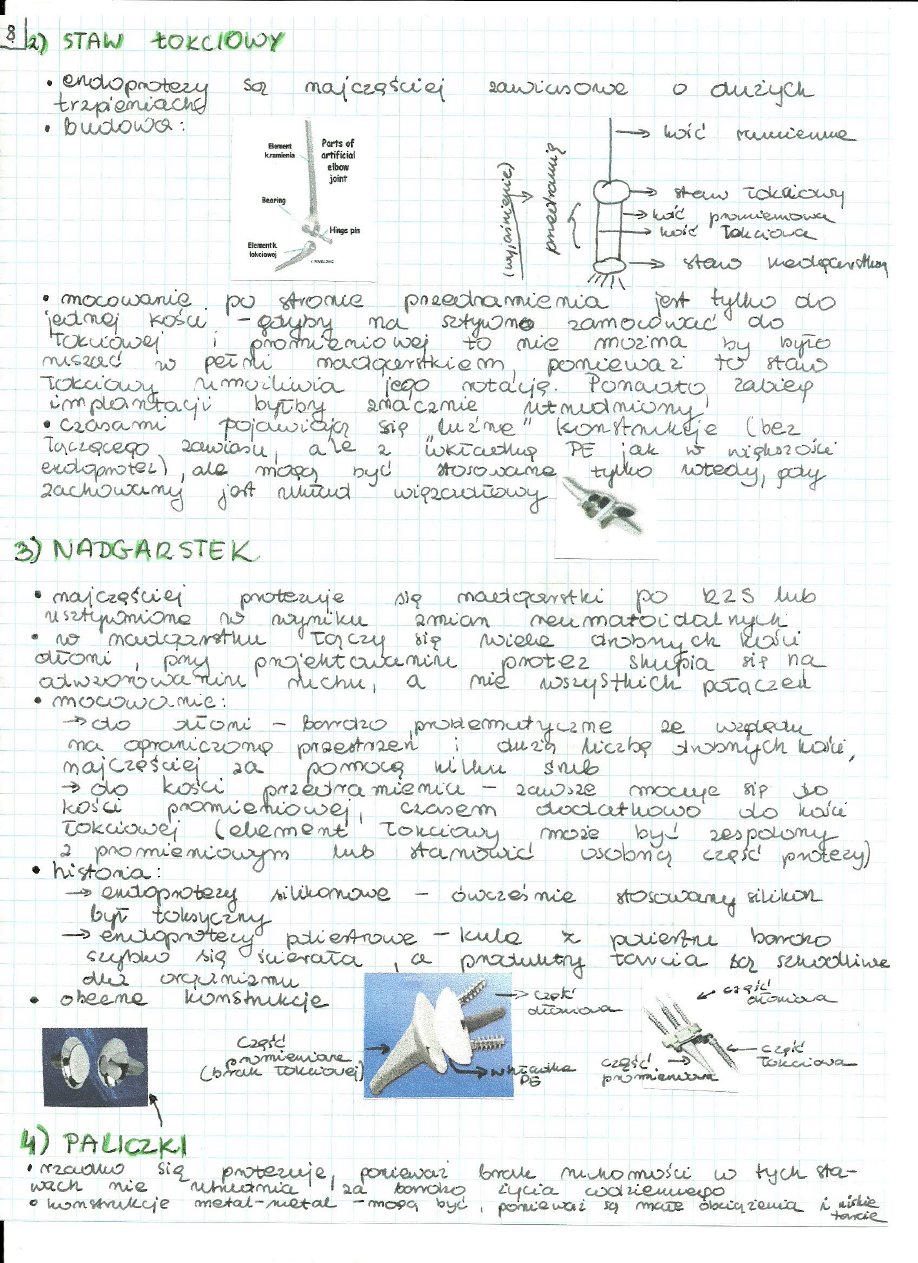 8
2) STAW ŁOKCIOWY
• endoprotezy są najczęściej zawiasowe o dużych
trzpieniach
• budowa:
Element k.ramienia
Parts of artificial elbow joint
Bearing
Hinge pin
Element k. łokciowej
(wyjaśnienie)
przedramię
kość ramienna
staw łokciowy
kość promieniowa
kość łokciowa
staw nadgarstkowy
• mocowanie po stronie przedramienia jest tylko do
jednej kości – gdyby na sztywno zamocować do
łokciowej i promieniowej to nie można by było
ruszać w pełni nadgarstkiem, ponieważ to staw
łokciowy umożliwia jego rotację. Ponadto, zabieg
implantacji byłby znacznie utrudniony
• czasami pojawiają się "luźne" konstrukcje (bez
łączącego zawiasu, ale z wkładką PE jak w większości
endoprotez), ale mogą być stosowane tylko wtedy, gdy
zachowany jest układ więzadłowy
3) NADGARSTEK
• najczęściej protezuje się nadgarstki po RZS lub
usztywnione w wyniku zmian reumatoidalnych
• w nadgarstku łączy się wiele drobnych kości
dłoni, przy projektowaniu protez skupia się na
odwzorowaniu ruchu, a nie wszystkich połączeń
• mocowanie:
→ do dłoni – bardzo problematyczne ze względu
na ograniczoną przestrzeń i dużą liczbę drobnych kości,
najczęściej za pomocą kilku śrub
→ do kości przedramienia – zawsze mocuje się do
kości promieniowej, czasem dodatkowo do kości
łokciowej (element łokciowy może być zespolony
z promieniowym lub stanowić osobną część protezy)
• historia:
→ endoprotezy silikonowe – ówcześnie stosowany silikon
był toksyczny
→ endoprotezy poliestrowe – kula z poliestru bardzo
szybko się ścierała, a produkty tarcia są szkodliwe
dla organizmu
• obecne konstrukcje
część promieniowa (brak łokciowej)
część dłoniowa
wkładka PE
część dłoniowa
część łokciowa
część promieniowa
4) PALICZKI
• rzadko się protezuje, ponieważ brak ruchomości w tych sta-
wach nie utrudnia za bardzo życia codziennego
• konstrukcje metal-metal – mogą być, ponieważ są małe obciążenia i niskie
tarcie